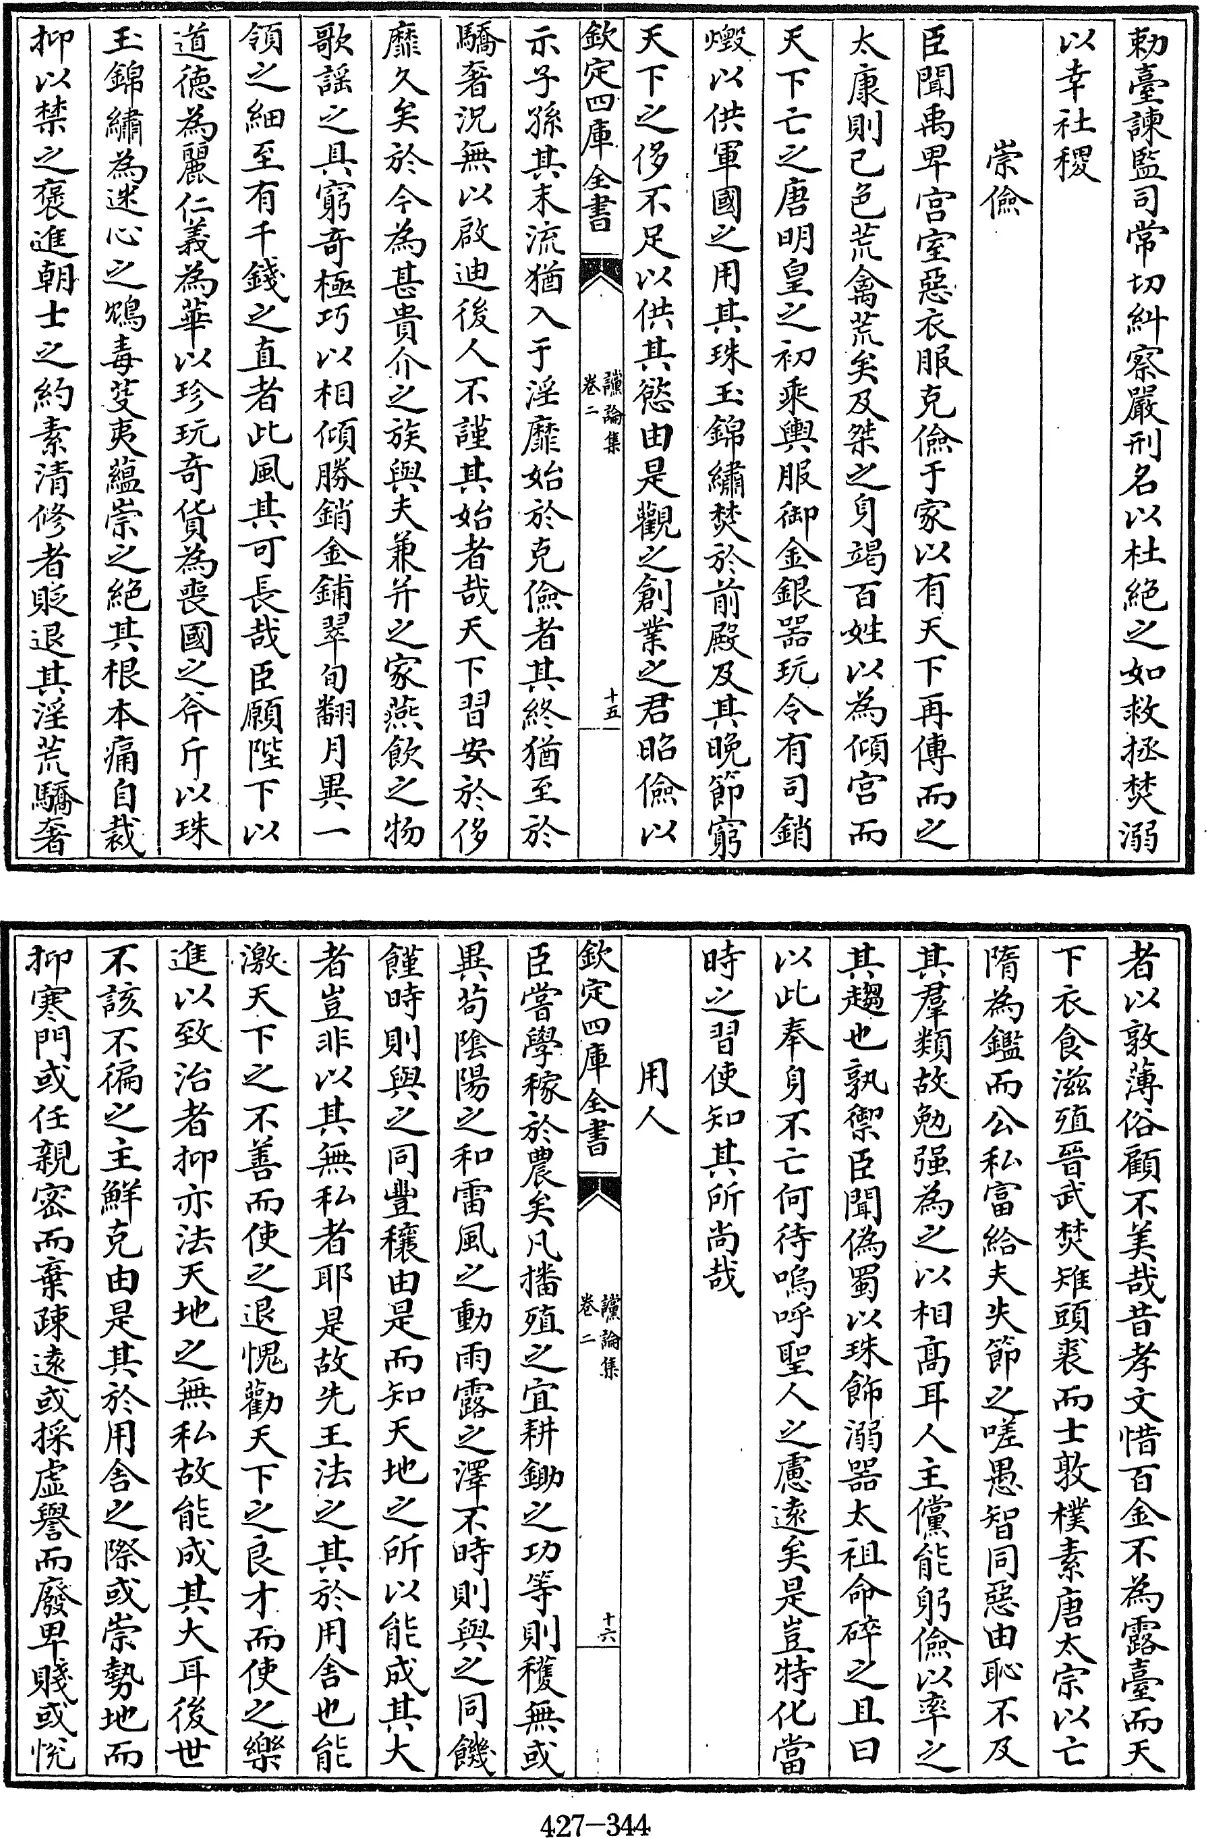 勅臺諫監司常切糾察嚴刑名以杜絶之如救拯焚溺
以幸社稷
崇儉
臣聞禹卑宫室惡衣服克儉于家以有天下再傳而之
太康則已色荒禽荒矣及桀之身竭百姓以為傾宫而
天下亡之唐明皇之初乘輿服御金銀器玩令有司銷
燬以供軍國之用其珠玉錦繡焚於前殿及其晚節窮
天下之侈不足以供其慾由是觀之創業之君昭儉以
欽定四庫全書
讜論集
卷二
十五
示子孫其末流猶入于淫靡始於克儉者其終猶至於
驕奢況無以啟迪後人不謹其始者哉天下習安於侈
靡久矣於今為甚貴介之族與夫兼并之家燕飲之物
歌謡之具窮奇極巧以相傾勝銷金鋪翠旬翻月異一
領之細至有千錢之直者此風其可長哉臣願陛下以
道德為麗仁義為華以珍玩奇貨為喪國之斧斤以珠
玉錦繡為迷心之鴆毒芟夷藴崇之絶其根本痛自裁
抑以禁之褒進朝士之約素清修者貶退其淫荒驕奢
者以敦薄俗顧不美哉昔孝文惜百金不為露臺而天
下衣食滋殖晉武焚雉頭裘而士敦樸素唐太宗以亡
隋為鑑而公私富給夫失節之嗟愚智同惡由恥不及
其羣類故勉强為之以相髙耳人主儻能躬儉以率之
其趨也孰禦臣聞偽蜀以珠飾溺器太祖命碎之且曰
以此奉身不亡何待嗚呼聖人之慮遠矣是豈特化當
時之習使知其所尚哉
用人
欽定四庫全書
讜論集
卷二
十六
臣嘗學稼於農矣凡播殖之宜耕鋤之功等則穫無或
異苟隂陽之和雷風之動雨露之澤不時則與之同饑
饉時則與之同豐穰由是而知天地之所以能成其大
者豈非以其無私者耶是故先王法之其於用舍也能
激天下之不善而使之退愧勸天下之良才而使之樂
進以致治者抑亦法天地之無私故能成其大耳後世
不該不徧之主鮮克由是其於用舍之際或崇勢地而
抑寒門或任親密而棄疎遠或採虛譽而廢卑賤或恱
427—344